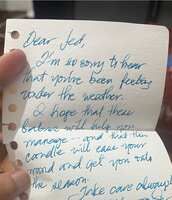 Dear Jed,
I'm so sorry to hear
that you've been feeling
under the weather.
I hope that these
will help you
manage - and that this
candle will ease your
mind and get you into
the season.
Take care always